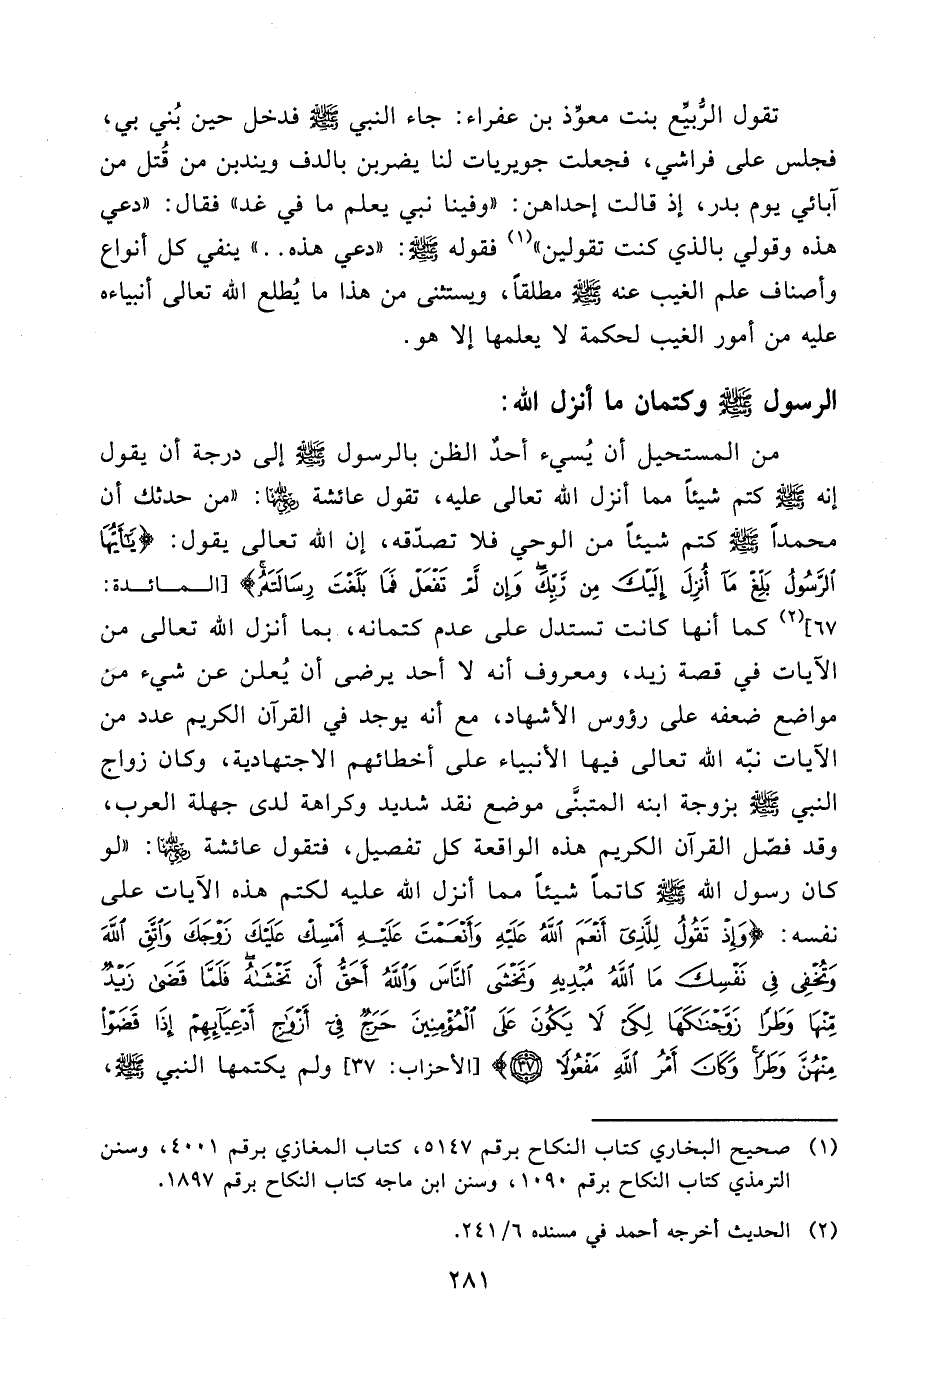 تقول الرُّبيِّع بنت معوِّذ بن عفراء: جاء النبي ﷺ فدخل حين بُني بي،
فجلس على فراشي، فجعلت جويريات لنا يضربن بالدف ويندبن من قُتل من
آبائي يوم بدر، إذ قالت إحداهن: «وفينا نبي يعلم ما في غد» فقال: «دعي
هذه وقولي بالذي كنت تقولين»(١) فقوله ﷺ: «دعي هذه..» ينفي كل أنواع
وأصناف علم الغيب عنه ﷺ مطلقاً، ويستثنى من هذا ما يُطلع الله تعالى أنبياءه
عليه من أمور الغيب لحكمة لا يعلمها إلا هو.
الرسول ﷺ وكتمان ما أنزل الله:
من المستحيل أن يُسيء أحدٌ الظن بالرسول ﷺ إلى درجة أن يقول
إنه ﷺ كتم شيئاً مما أنزل الله تعالى عليه، تقول عائشة رضي الله عنها: «من حدثك أن
محمداً ﷺ كتم شيئاً من الوحي فلا تصدّقه، إن الله تعالى يقول: ﴿يَٰٓأَيُّهَا
ٱلرَّسُولُ بَلِّغْ مَآ أُنزِلَ إِلَيْكَ مِن رَّبِّكَۖ وَإِن لَّمْ تَفْعَلْ فَمَا بَلَّغْتَ رِسَالَتَهُۥۚ﴾ [المـائـدة:
٦٧](٢) كما أنها كانت تستدل على عدم كتمانه، بما أنزل الله تعالى من
الآيات في قصة زيد، ومعروف أنه لا أحد يرضى أن يُعلن عن شيء من
مواضع ضعفه على رؤوس الأشهاد، مع أنه يوجد في القرآن الكريم عدد من
الآيات نبّه الله تعالى فيها الأنبياء على أخطائهم الاجتهادية، وكان زواج
النبي ﷺ بزوجة ابنه المتبنَّى موضع نقد شديد وكراهة لدى جهلة العرب،
وقد فصّل القرآن الكريم هذه الواقعة كل تفصيل، فتقول عائشة رضي الله عنها: «لو
كان رسول الله ﷺ كاتماً شيئاً مما أنزل الله عليه لكتم هذه الآيات على
نفسه: ﴿وَإِذْ تَقُولُ لِلَّذِىٓ أَنْعَمَ ٱللَّهُ عَلَيْهِ وَأَنْعَمْتَ عَلَيْهِ أَمْسِكْ عَلَيْكَ زَوْجَكَ وَٱتَّقِ ٱللَّهَ
وَتُخْفِى فِى نَفْسِكَ مَا ٱللَّهُ مُبْدِيهِ وَتَخْشَى ٱلنَّاسَ وَٱللَّهُ أَحَقُّ أَن تَخْشَىٰهُۖ فَلَمَّا قَضَىٰ زَيْدٌ
مِّنْهَا وَطَرًا زَوَّجْنَٰكَهَا لِكَىْ لَا يَكُونَ عَلَى ٱلْمُؤْمِنِينَ حَرَجٌ فِىٓ أَزْوَٰجِ أَدْعِيَآئِهِمْ إِذَا قَضَوْا۟
مِنْهُنَّ وَطَرًاۚ وَكَانَ أَمْرُ ٱللَّهِ مَفْعُولًا ٣٧﴾ [الأحزاب: ٣٧] ولم يكتمها النبي ﷺ،
(١) صحيح البخاري كتاب النكاح برقم ٥١٤٧، كتاب المغازي برقم ٤٠٠١، وسنن
الترمذي كتاب النكاح برقم ١٠٩٠، وسنن ابن ماجه كتاب النكاح برقم ١٨٩٧.
(٢) الحديث أخرجه أحمد في مسنده ٦/ ٢٤١.
٢٨١